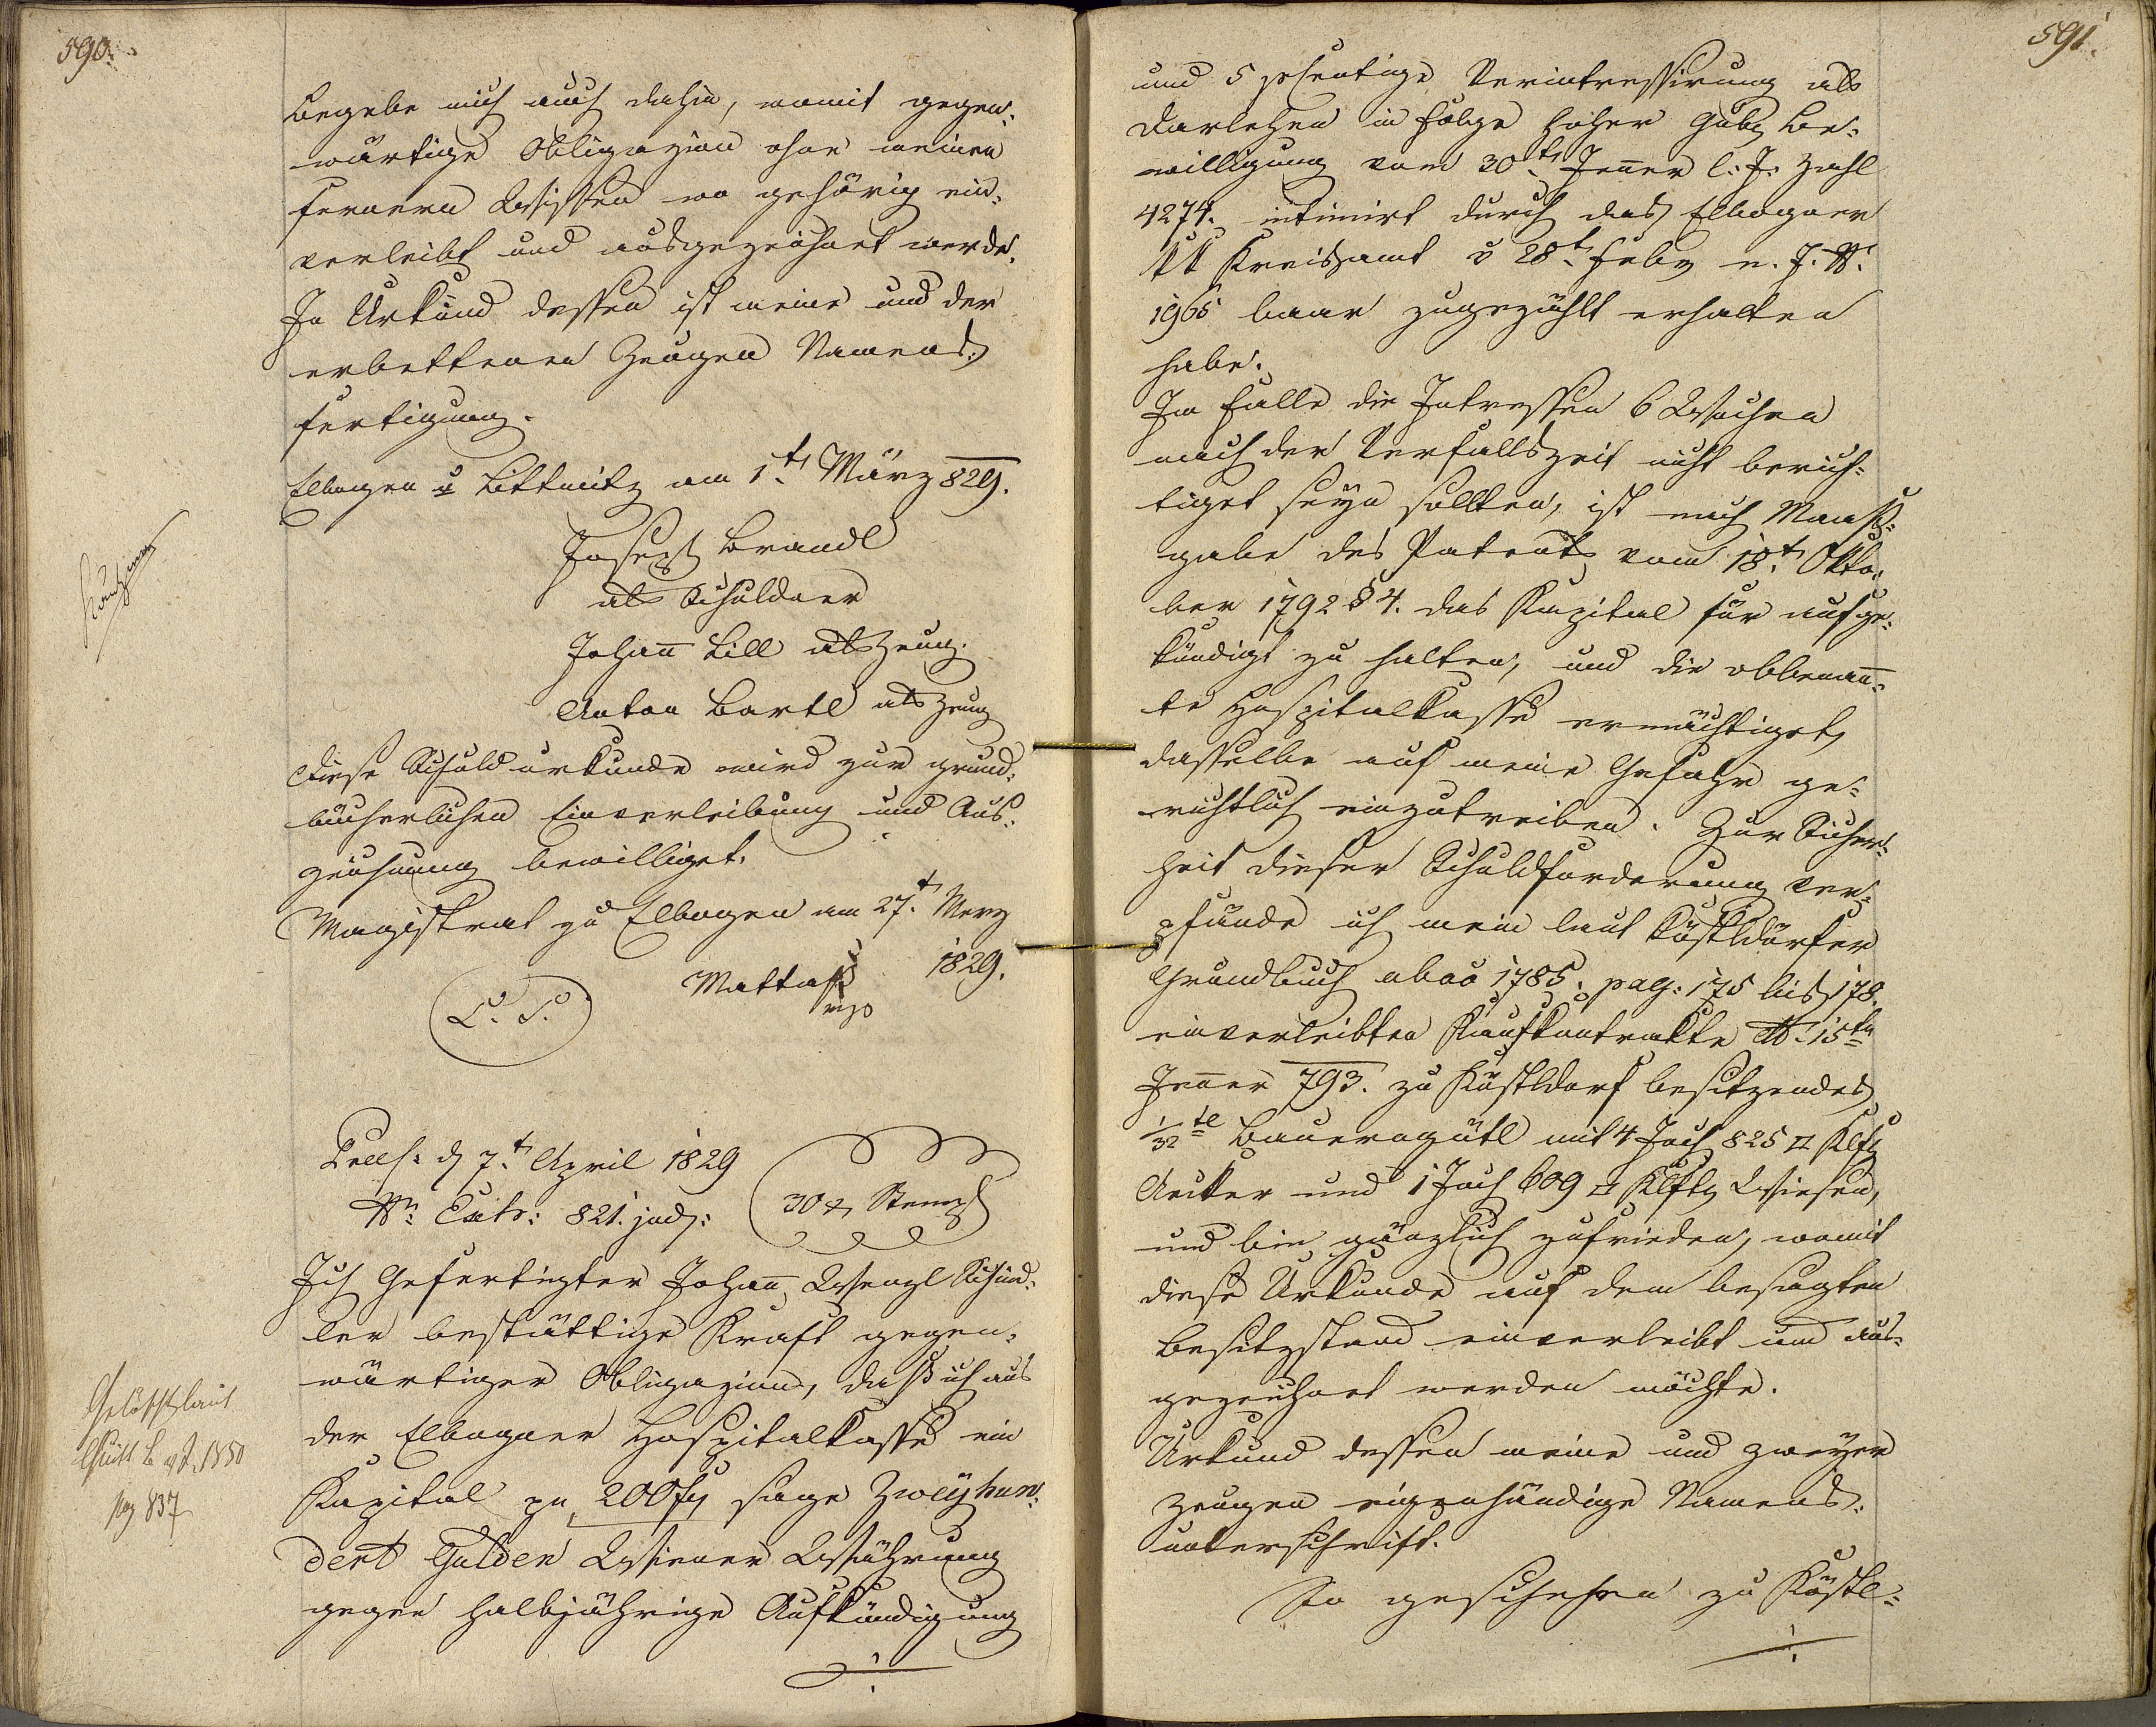 590.
begebe mich auch dahin, womit gegen-
wärtige Obligazion ohne meinen
fernern Wissen wo gehörig ein-
verleibt und ausgezeichnet werde.
In Urkund dessen ist meine und der
erbettenen Zeugen Namens-
fertigung.
Elbogen u Littmitz am 1t März 829.
Joseph Brandl
als Schuldner
Johan̄ Lill als Zeug.
Anton Bartl als Zeug
Diese Schuldurkunde wird zur grund-
bücherlichen Einverleibung und Aus-
zeichnung bewilliget.
Magistrat zu Elbogen am 27t Merz
1829.
L. S.
Praes: d 7t April 1829
Nr. Exh: 821. jud:
30 x Stempl
Ich Gefertigter Johan̄ Wenzl Schind-
ler bestättige Kraft gegen-
wärtiger Obligazion, daß ich aus
der Elbogner Hospitalkasse ein
Kapital pr 200 f sage Zweyhun-
dert Gulden Wiener Währung
gegen halbjährige Aufkündigung
Gelöscht laut
pag 837
591.
und 5 pcentige Verintressirung als
Darlehen in Folge hoher Gub. Be-
willigung vom 30t Jen̄er l. J. Zahl
4274. intimirt durch das Elbogner
kk Kreisamt v 28t Feby n. J. N.
1965 baar zugezählt erhalten
habe.
Im Falle die Intressen 6 Wochen
nach der Verfallszeit nicht berich-
tiget seyn sollten, ist nach Maaß-
gabe des Patents vom 18t Okto-
ber 1792 § 4. das Kapital für aufge-
kündigt zu halten, und die obbenan̄-
te Hospitalkasse ermächtiget,
dasselbe auf meine Gefahr ge-
richtlich einzutreiben. Zur Sicher-
heit dieser Schuldforderung ver-
pfände ich mein laut Köstldorfer
Grundbuch abao 1785. pag: 175 bis 178.
einverleibten Kaufkontrakte dto 15ten
Jen̄er 793. zu Köstldorf besitzendes
1/32 tl Bauerngütl mit 4 Joch 825 □ Klft
Aecker und 1 Joch 609 □ Klft Wiesen,
und bin gänzlich zufrieden, womit
diese Urkunde auf dem besagten
Besitzstand einverleibt und aus-
gezeichnet werden möchte.
Urkund dessen meine und zweyer
Zeugen eigenhändige Namens-
unterschrift.
So geschehen zu Köstl-